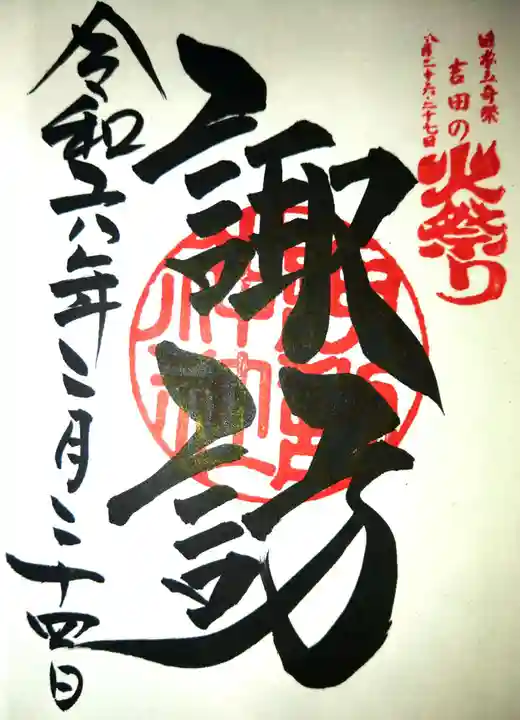 日本三奇祭
八月二十六・二十七日
吉田の
火祭り
諏訪
諏訪神社
令和六年二月二十四日